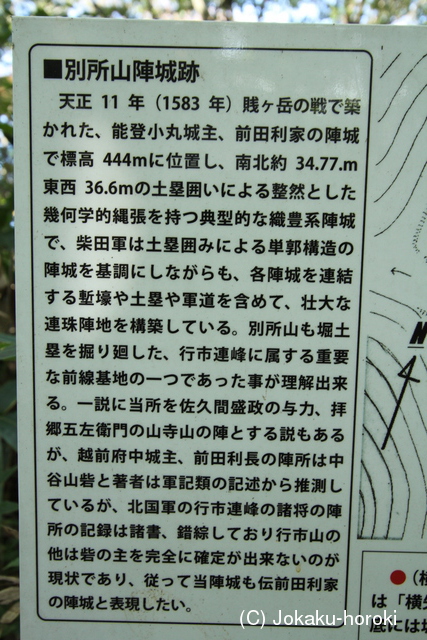 ■別所山陣城跡
天正 11 年（1583 年）賎ヶ岳の戦で築
かれた、能登小丸城主、前田利家の陣城
で標高 444mに位置し、南北約 34.77.m
東西 36.6mの土塁囲いによる整然とした
幾何学的縄張を持つ典型的な織豊系陣城
で、柴田軍は土塁囲みによる単郭構造の
陣城を基調にしながらも、各陣城を連結
する塹壕や土塁や軍道を含めて、壮大な
連珠陣地を構築している。別所山も堀土
塁を掘り廻した、行市連峰に属する重要
な前線基地の一つであった事が理解出来
る。一説に当所を佐久間盛政の与力、拝
郷五左衛門の山寺山の陣とする説もある
が、越前府中城主、前田利長の陣所は中
谷山砦と著者は軍記類の記述から推測し
ているが、北国軍の行市連峰の諸将の陣
所の記録は諸書、錯綜しており行市山の
他は砦の主を完全に確定が出来ないのが
現状であり、従って当陣城も伝前田利家
の陣城と表現したい。
N
●（
は「横
底には
(C) Jokaku-horoki